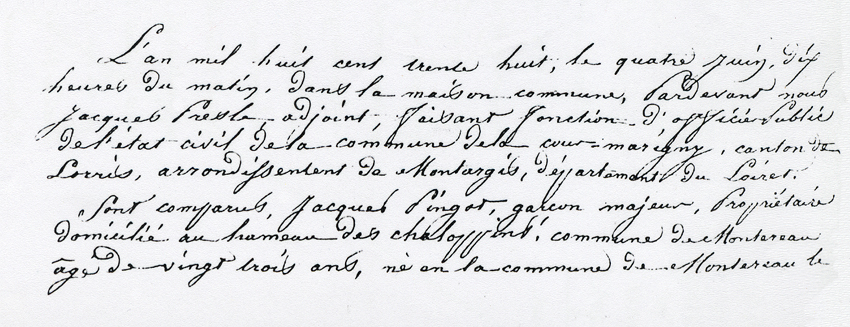 L'an mil huit cent trente huit, le quatre Juin, dix
heures du matin, dans la maison commune, Pardevant nous
Jacques Presle adjoint, faisant fonction d'officier Public
de l'état civil de la commune de la cour-marigny, canton de
Lorris, arrondissement de Montargis, département du Loiret.
Sont comparus, Jacques Pingot, garçon majeur, Propriétaire
domicilié au hameau des commune de Montereau
âgé de vingt trois ans, né en la commune de Montereau le